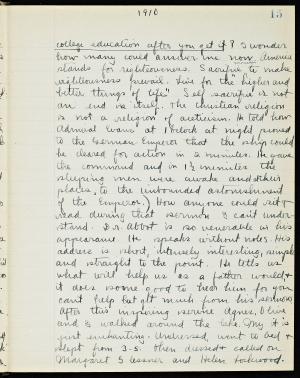 1910
15
college education after you get it? I wonder
how many could answer me now. America
stands for righteousness. Sacrifice to make
righteousness prevail. Live for the "higher and
better things of life". Self sacrifice is not
an end in itself. The Christian religion
is not a religion of asceticism. He told how
Admiral Evans at 1 o'clock at night proved
to the German Emperor that the ship could
be cleared for action in 2 minutes. He gave
the command and in 1½ minutes the
sleeping men were awake and at their
places, to the (unbounded astonishment
of the Emperor.) How anyone could sit &
read during that sermon I can't under-
stand. Dr. Abbot is so venerable in his
appearance. He speaks without notes. His
address is short, intensely interesting, simple
and straight to the point. He tells us
what will help us as a father would &
it does some good to hear him for you
can't help but get much from his sermons
After this inspiring service Agnes, Olive
and I walked around the lake. My it is
just enchanting. Undressed, went to bed &
slept from 3-5. Then dressed & called on
Margaret and Helen